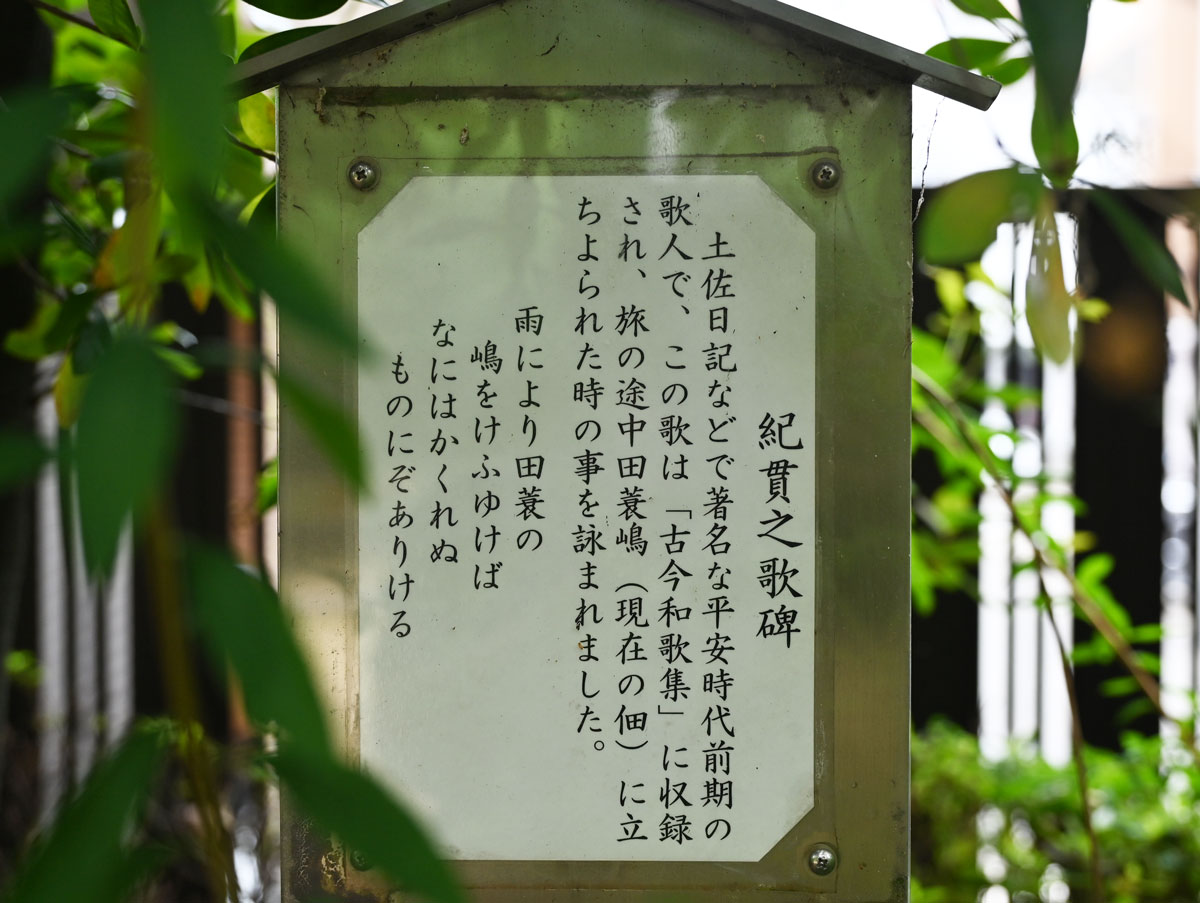 紀貫之歌碑
土佐日記などで著名な平安時代前期の
歌人で、この歌は「古今和歌集」に収録
され、旅の途中田蓑嶋（現在の佃）に立
ちよられた時の事を詠まれました。
雨により田蓑の
嶋をけふゆけば
なにはかくれぬ
ものにぞありける